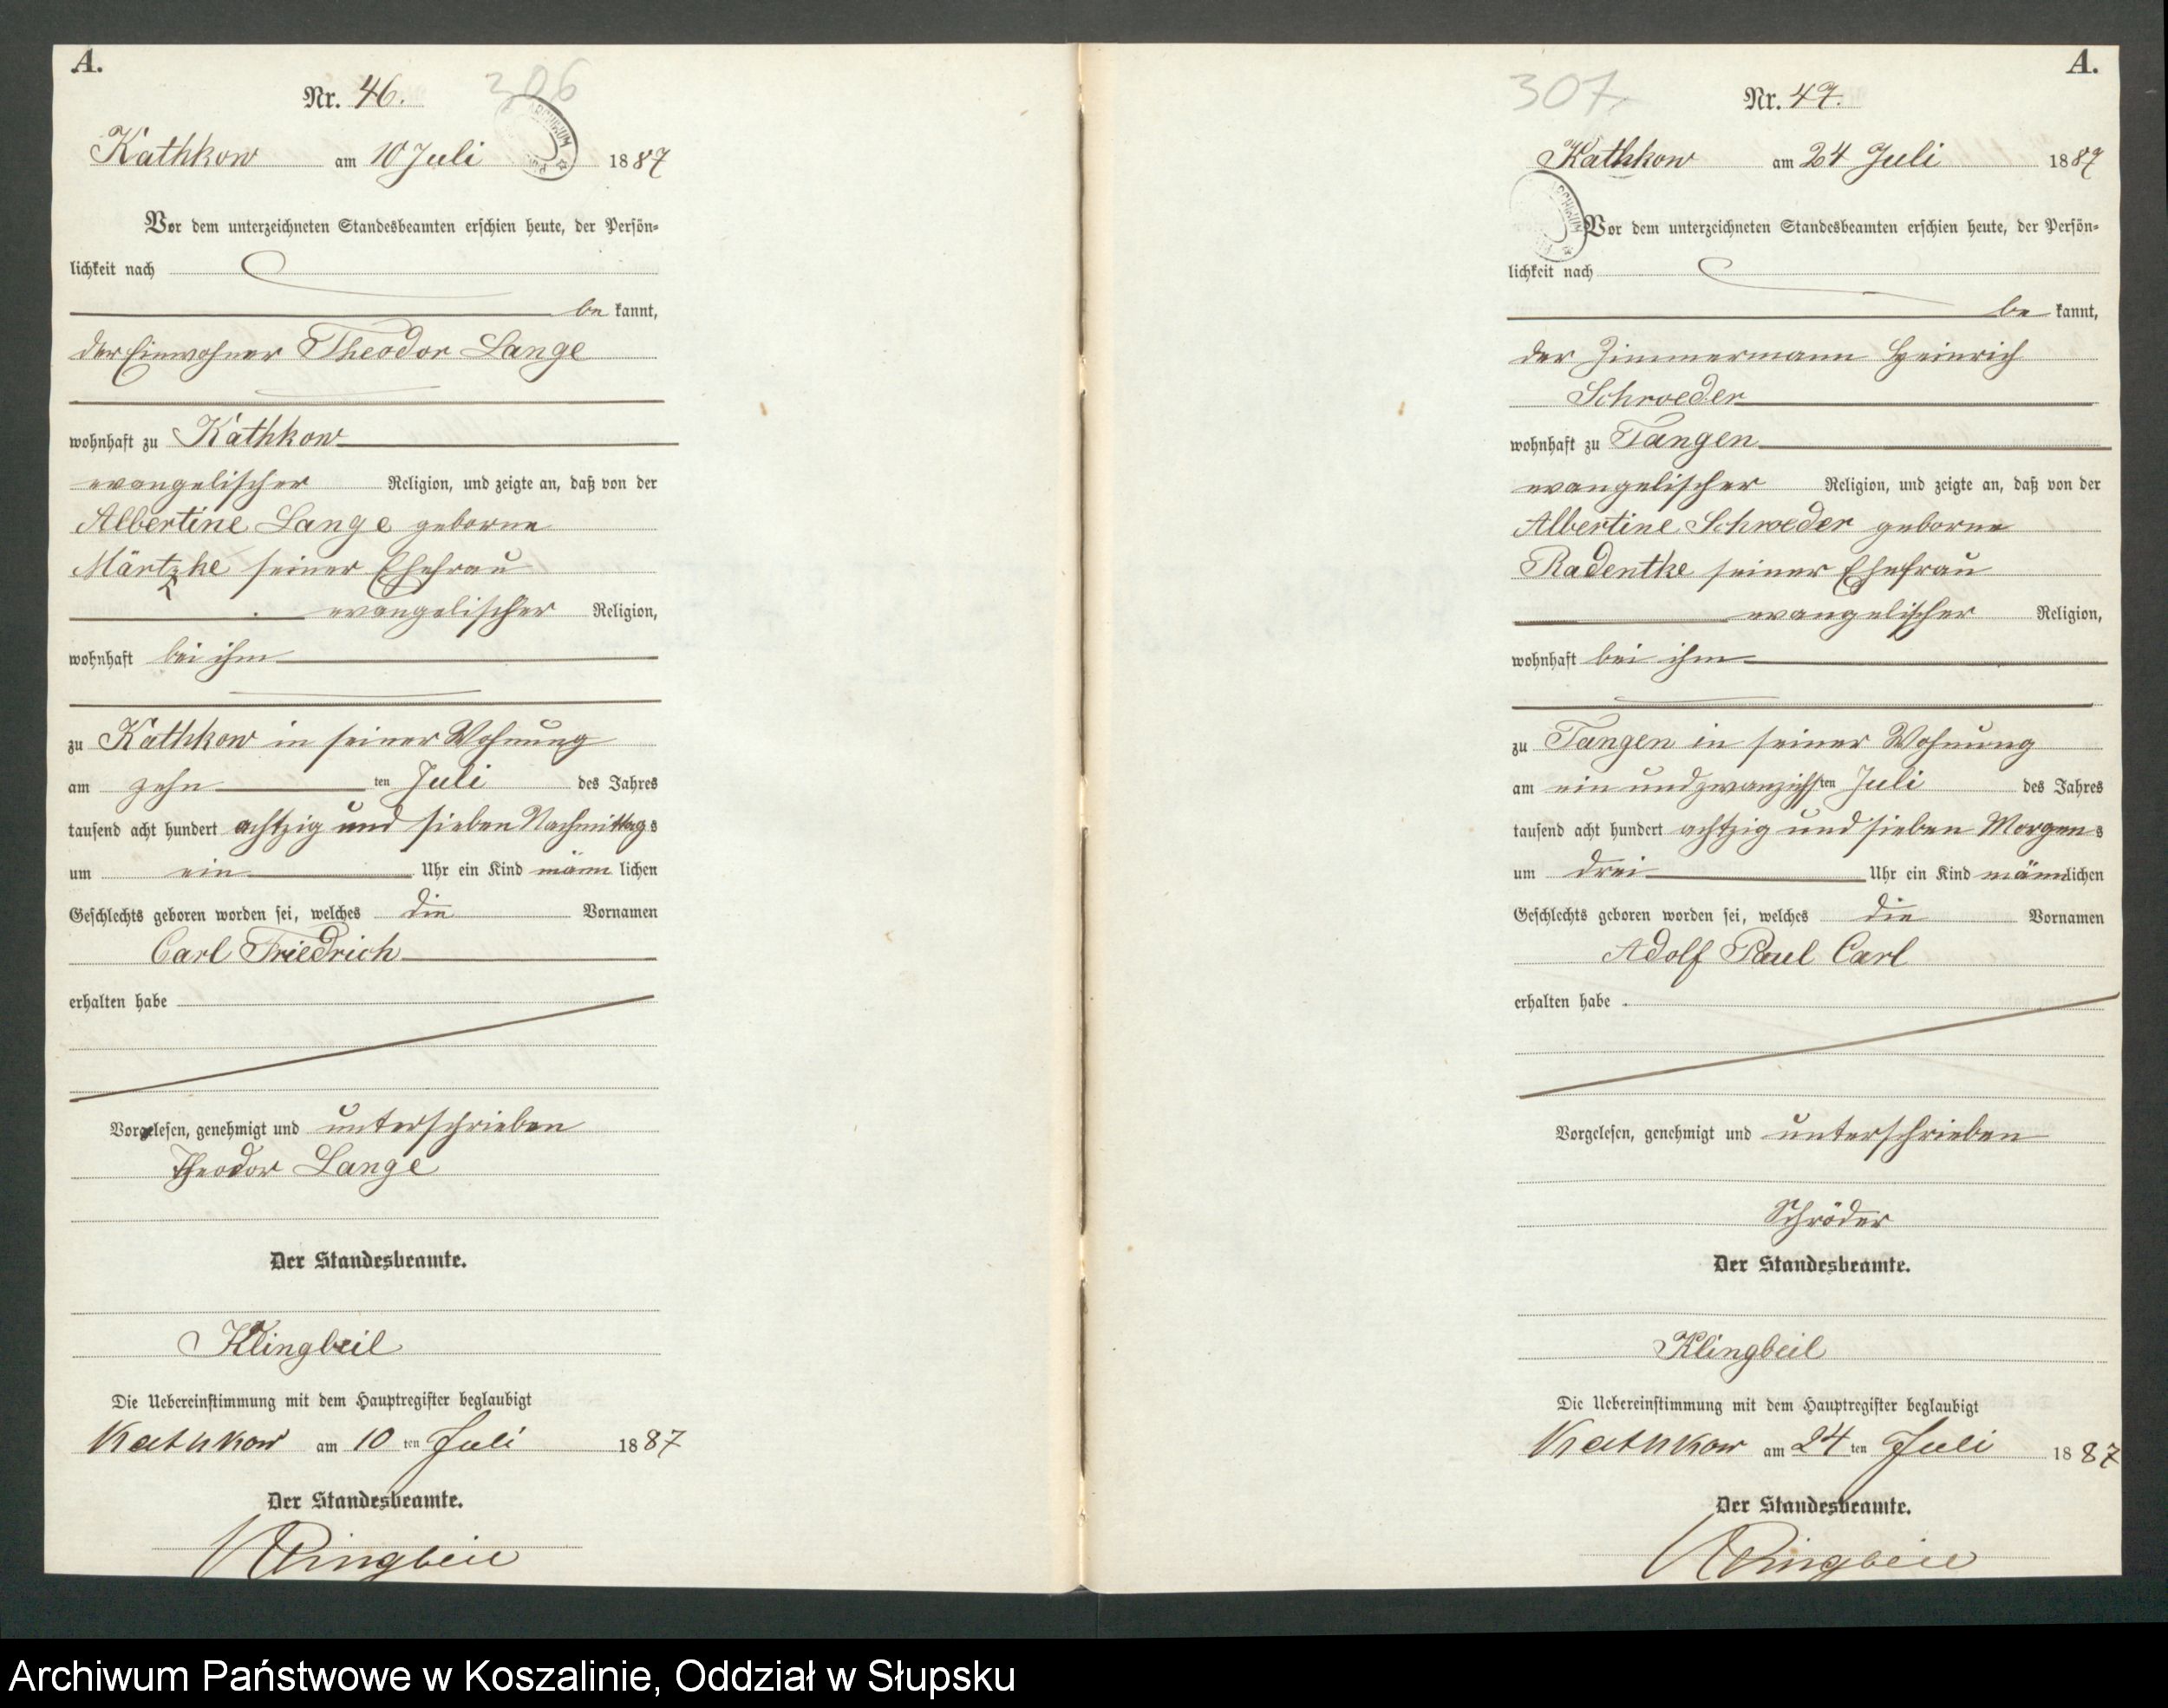 A.
Nr. 46.
306
Kathkow am 10 Juli 1887
Vor dem unterzeichneten Standesbeamten erschien heute, der Persön-
lichkeit nach
be kannt,
der Einwohner Theodor Lange
wohnhaft zu Kathkow
evangelischer Religion, und zeigte an, daß von der
Albertine Lange geborne
Märtzke seiner Ehefrau
evangelischer Religion,
wohnhaft bei ihm
zu Kathkow in seiner Wohnung
am zehn ten Juli des Jahres
tausend acht hundert achtzig und sieben Nachmittags
um ein Uhr ein Kind männ lichen
Geschlechts geboren worden sei, welches die Vornamen
Carl Friedrich
erhalten habe
Vorgelesen, genehmigt und unterschrieben
Theodor Lange
Der Standesbeamte.
Klingbeil
Die Uebereinstimmung mit dem Hauptregister beglaubigt
Kathkow am 10 ten Juli 1887
Der Standesbeamte.
Klingbeil
A.
307
Nr. 47.
Kathkow am 24 Juli 1887
ARCHIWUM
Vor dem unterzeichneten Standesbeamten erschien heute, der Persön-
lichkeit nach
be kannt,
der Zimmermann Heinrich
Schroeder
wohnhaft zu Tangen
evangelischer Religion, und zeigte an, daß von der
Albertine Schroeder geborne
Radentke seiner Ehefrau
evangelischer Religion,
wohnhaft bei ihm
zu Tangen in seiner Wohnung
am ein und zwanzigsten Juli des Jahres
tausend acht hundert achtzig und sieben Morgens
um drei Uhr ein Kind männlichen
Geschlechts geboren worden sei, welches die Vornamen
Adolf Paul Carl
erhalten habe
Vorgelesen, genehmigt und unterschrieben
Schröder
Der Standesbeamte.
Klingbeil
Die Uebereinstimmung mit dem Hauptregister beglaubigt
Kathkow am 24 ten Juli 1887
Der Standesbeamte.
Klingbeil
Archiwum Państwowe w Koszalinie, Oddział w Słupsku